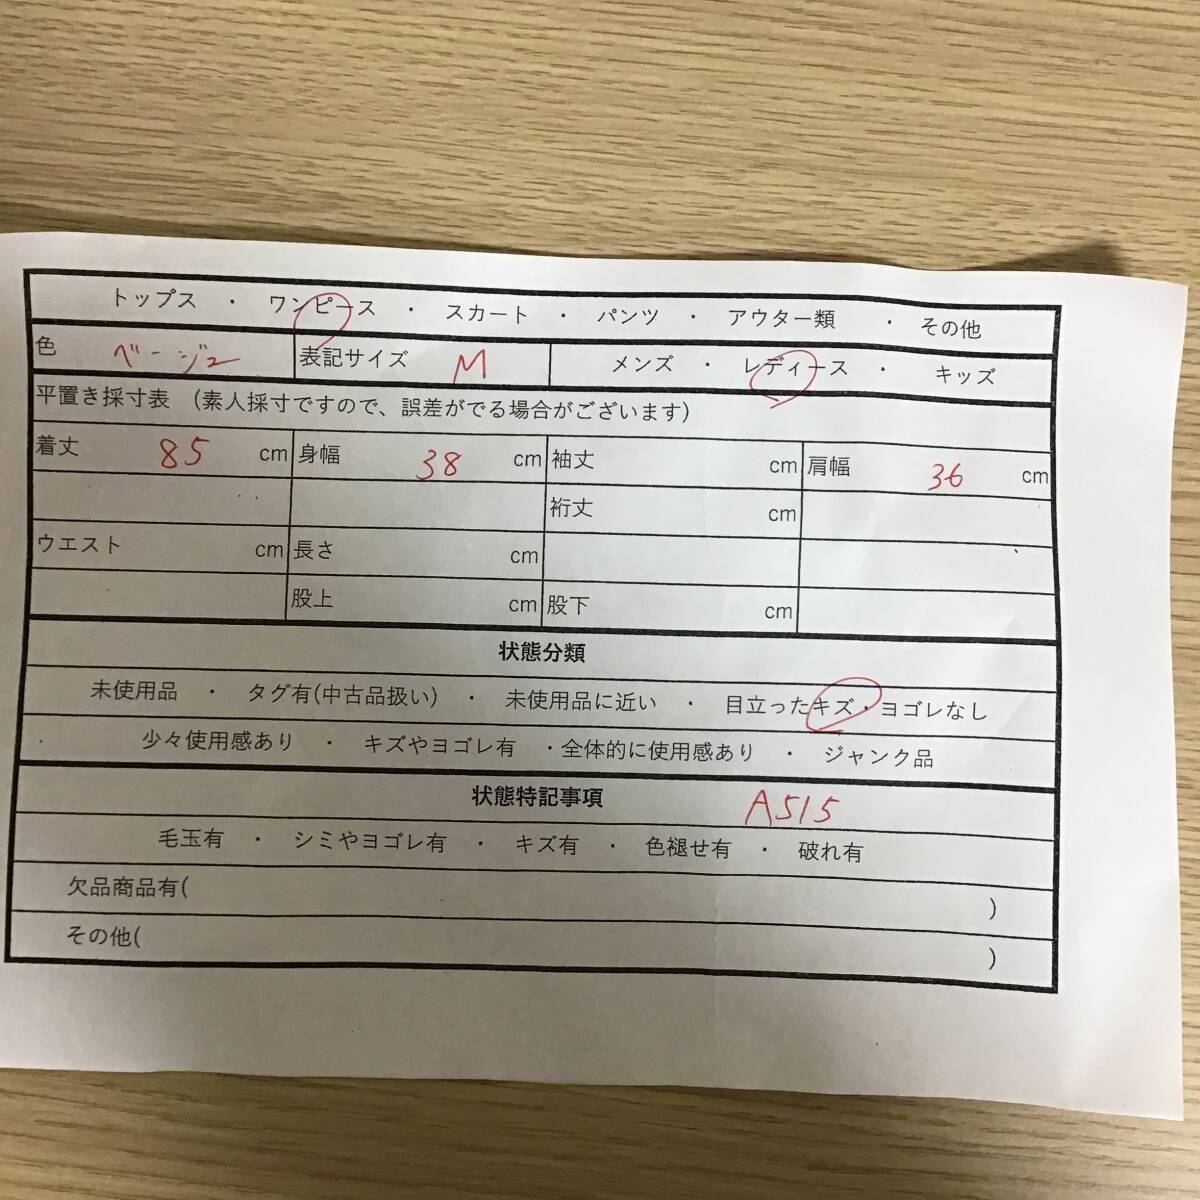 トップス ・ ワンピース ・ スカート ・ パンツ ・ アウター類 ・ その他
色 ベージュ 表記サイズ M メンズ ・ レディース ・ キッズ
平置き採寸表 (素人採寸ですので、誤差がでる場合がございます)
着丈 85 cm 身幅 38 cm 袖丈 cm 肩幅 36 cm
裄丈 cm
ウエスト cm 長さ cm
股上 cm 股下 cm
状態分類
未使用品 ・ タグ有(中古品扱い) ・ 未使用品に近い ・ 目立ったキズ・ヨゴレなし
少々使用感あり ・ キズやヨゴレ有 ・全体的に使用感あり ・ ジャンク品
状態特記事項 A515
毛玉有 ・ シミやヨゴレ有 ・ キズ有 ・ 色褪せ有 ・ 破れ有
欠品商品有( )
その他( )